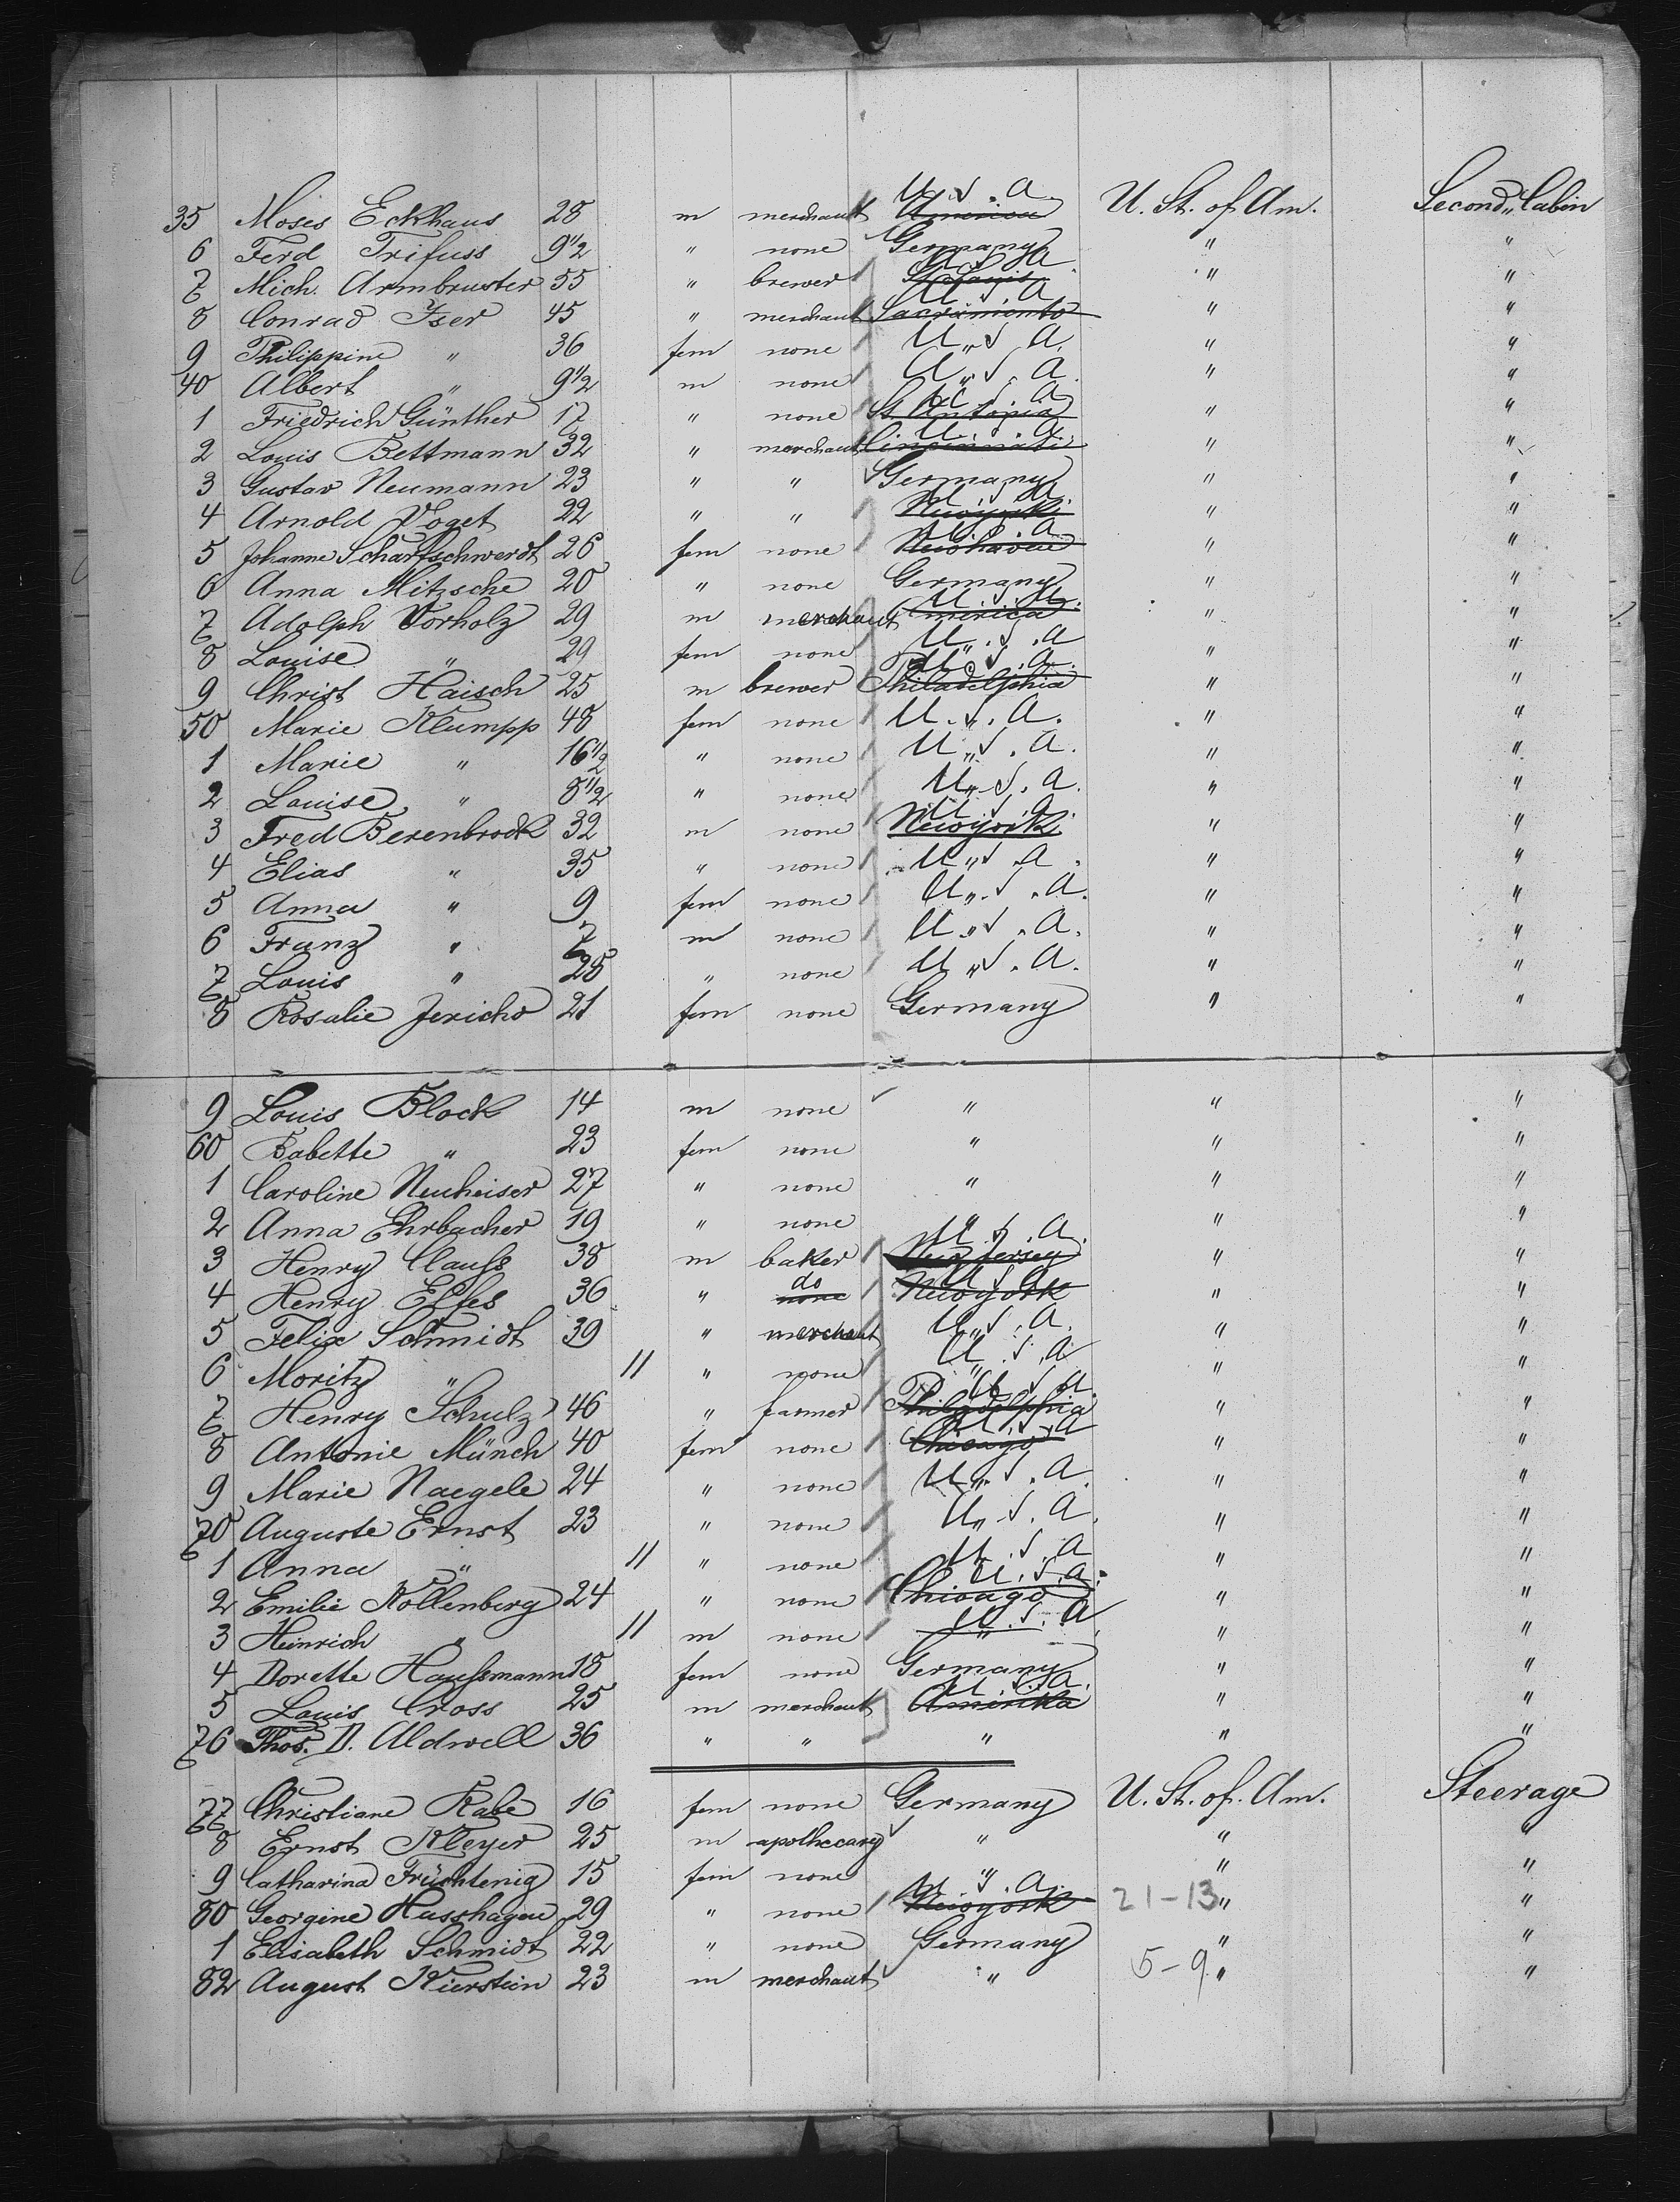 35 Moses Eckhaus 28 m merchant America U.S.A. U. St. of Am. Second Cabin
6 Ferd Trifuss 9 1/2 " none Germany " "
7 Mich. Armbruster 55 " brewer St Louis U.S.A. " "
8 Conrad Iser 45 " merchant Sacramento U.S.A. " "
9 Philippine " 36 fem none U.S.A. " "
40 Albert " 9 1/2 m none U.S.A. " "
1 Friedrich Günther 17 " none St. Antonia U.S.A. " "
2 Louis Bettmann 32 " merchant Cincinnati U.S.A. " "
3 Gustav Neumann 23 " " Germany " "
4 Arnold Voget 22 " " Newyork U.S.A. " "
5 Johanne Scharfschwerdt 26 fem none Newhaven U.S.A. " "
6 Anna Mitzsche 20 " none Germany " "
7 Adolph Vorholz 29 m merchant America U.S.A. " "
8 Louise " 29 fem none U.S.A. " "
9 Christ Haisch 25 m brewer Philadelphia U.S.A. " "
50 Marie Klumpp 48 fem none U.S.A. " "
1 Marie " 16 1/2 " none U.S.A. " "
2 Louise " 8 1/2 " none U.S.A. " "
3 Fred Berenbrock 32 m none Newyork U.S.A. " "
4 Elias " 35 " none U.S.A. " "
5 Anna " 9 fem none U.S.A. " "
6 Franz " 7 m none U.S.A. " "
7 Louis " 28 " none U.S.A. " "
8 Rosalie Jericho 21 fem none Germany " "
9 Louis Block 14 m none " " "
60 Babette " 23 fem none " " "
1 Caroline Neuheiser 27 " none " " "
2 Anna Ehrbacher 19 " none " " "
3 Henry Clauss 38 m baker New Jersey U.S.A. " "
4 Henry Elfes 36 " none do Newyork U.S.A. " "
5 Felix Schmidt 39 " merchant U.S.A. " "
6 Moritz " 11 " none U.S.A. " "
7 Henry Schulz 46 " farmer Philadelphia U.S.A. " "
8 Antonie Münch 40 fem none Chicago U.S.A. " "
9 Marie Naegele 24 " none U.S.A. " "
70 Auguste Ernst 23 " none U.S.A. " "
1 Anna " 11 " none U.S.A. " "
2 Emilie Kollenberg 24 " none Chicago U.S.A. " "
3 Heinrich " 11 m none U.S.A. " "
4 Dorette Haussmann 18 fem none Germany " "
5 Louis Cross 25 m merchant Amerika U.S.A. " "
76 Thos. D. Aldwell 36 " " " " "
77 Christiane Rabe 16 fem none Germany U. St. of. Am. Steerage
8 Ernst Kleyer 25 m apothecary " " "
9 Catharina Früchtenig 15 fem none " " "
80 Georgine Husshagen 29 " none Newyork U.S.A. 21-13 " "
1 Elisabeth Schmidt 22 " none Germany " "
82 August Kierstein 23 m merchant " 5-9 " "